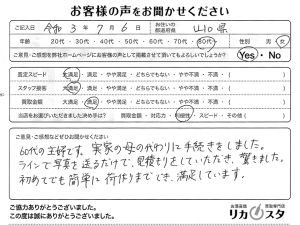 お客様の声をお聞かせください
ご記入日 令和 3 年 7 月 6 日 お住いの都道府県 山口県
年齢 20代 ・ 30代 ・ 40代 ・ 50代 ・ 60代 ・ 70代 ・ 80代 性別 男 ・ 女
ご意見・ご感想を弊社ホームページにお客様の声として掲載させて頂いてもよろしいでしょうか? Yes ・ No
査定スピード 大満足 ・ 満足 ・ やや満足 ・ どちらでもない ・ やや不満 ・ 不満 ・ ( )
スタッフ接客 大満足 ・ 満足 ・ やや満足 ・ どちらでもない ・ やや不満 ・ 不満 ・ ( )
買取金額 大満足 ・ 満足 ・ やや満足 ・ どちらでもない ・ やや不満 ・ 不満 ・ ( )
当店をお選びいただきました決め手は? 買取金額 ・ 対応力 ・ 利便性 ・ その他 ( )
ご意見・ご感想などぜひお聞かせください
60代の主婦です。実家の母の代わりに手続きをしました。
ラインで写真を送るだけで、見積もりをしていただき、驚きました。
初めてでも簡単に荷作りまででき、満足しています。
ご協力ありがとうございました。
この度は誠にありがとうございました。
お酒高価買取専門店
リカスタ